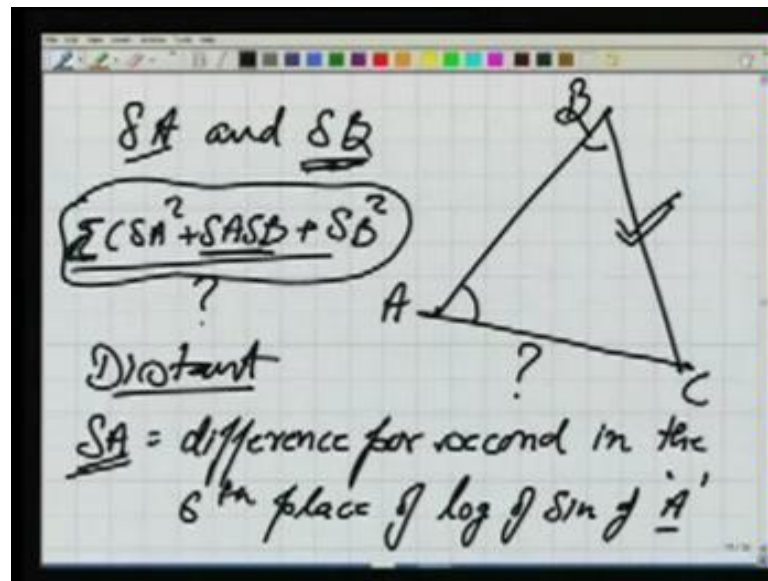 δA and δB
Σ(δA² + δAδB + δB²
?
Distant
δA = difference per second in the
6th place of log of sin of 'A'
B
A
?
C